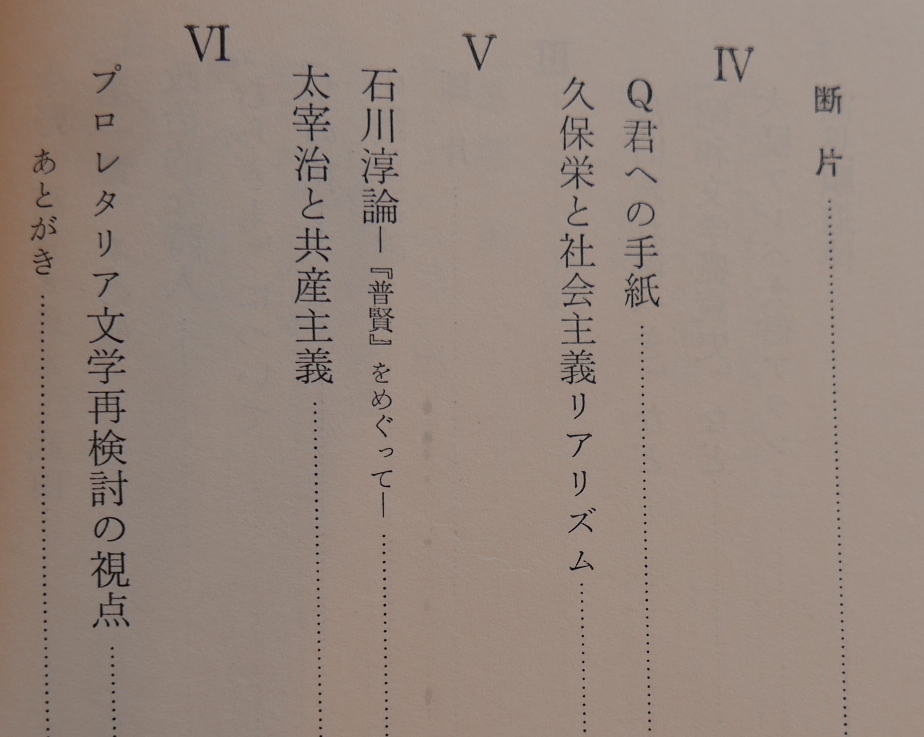 断片
Ⅳ
Q君への手紙
久保栄と社会主義リアリズム
Ⅴ
石川淳論―『普賢』をめぐって―
太宰治と共産主義
Ⅵ
プロレタリア文学再検討の視点
あとがき